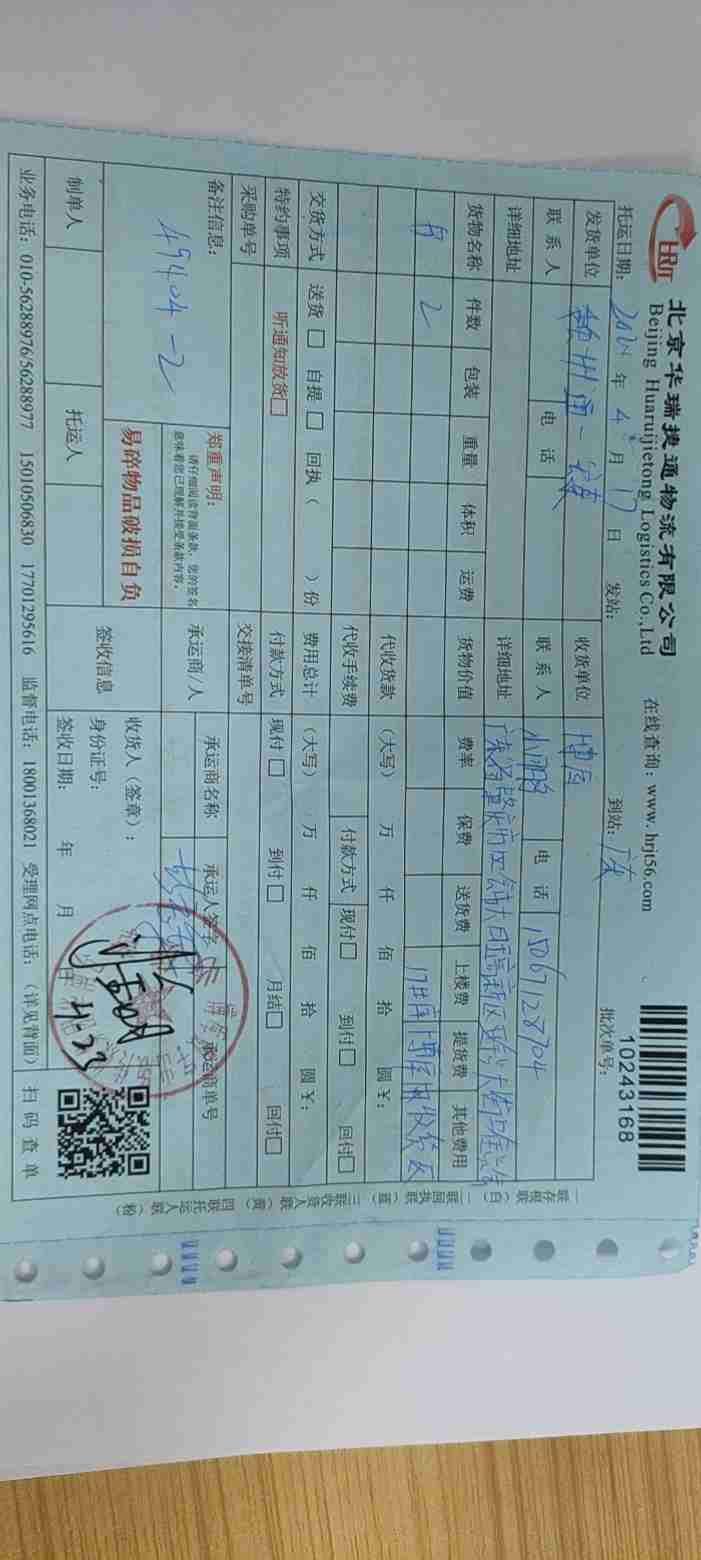 HRJT
北京华瑞捷通物流有限公司
Beijing Huaruijietong Logistics Co.,Ltd
在线查询：www.hrjt56.com
10243168
批次单号：
托运日期： 年 4 月 17 日 发站： 到站：广东
发货单位 收货单位
联系人 电话 联系人 电话 15067128704
详细地址 详细地址
货物名称 件数 包装 重量 体积 运费 货物价值 费率 保费 送货费 上楼费 提货费 其他费用
2
代收货款 （大写） 万 仟 佰 拾 圆￥：
代收手续费 付款方式 现付□ 到付□ 回付□
交货方式 送货□ 自提□ 回执（ ）份 费用总计 （大写） 万 仟 佰 拾 圆￥：
特约事项 听通知放货□ 付款方式 现付□ 到付□ 月结□ 回付□
采购单号 交接清单号
备注信息：
49404-2
郑重声明：
请仔细阅读背面条款，您的签名
意味着您已理解并接受条款内容。
易碎物品破损自负
承运商/人 承运商名称 承运人签字 承运商单号
制单人 托运人 签收信息 收货人（签章）：
身份证号：
签收日期： 年 月 日
4.23
扫码查单
业务电话：010-56288976/56288977 15010506830 17701295616 监督电话：18001368021 受理网点电话：（详见背面）
一联存根联（白） 二联回执联（蓝） 三联收货人联（黄） 四联托运人联（粉）